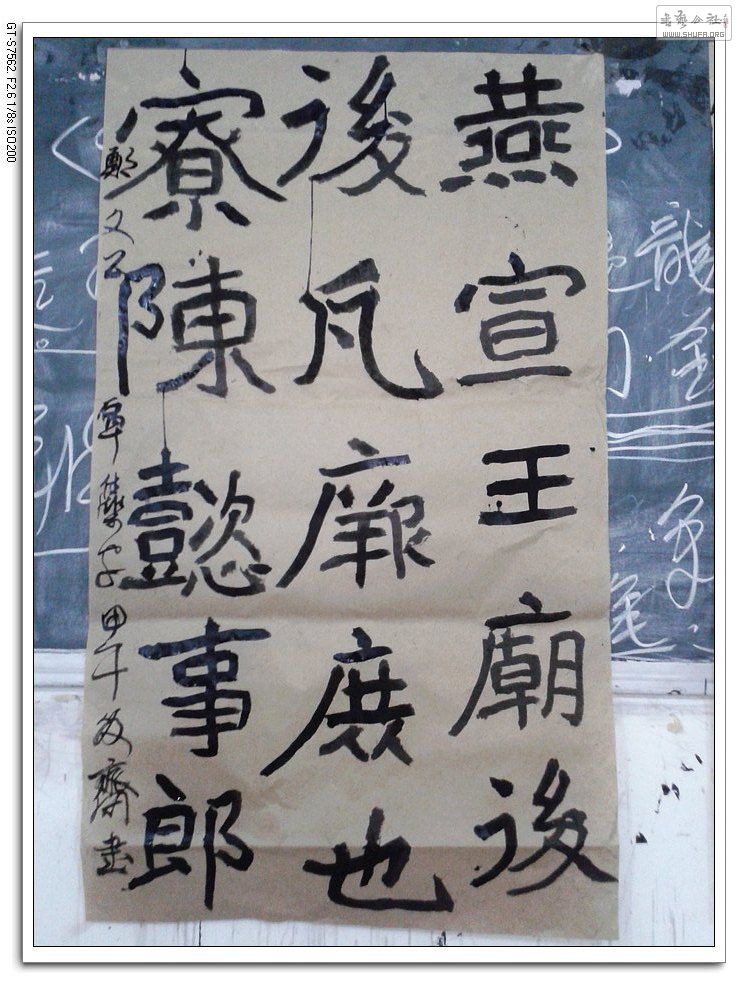 書藝公社
WWW.SHUFA.ORG
GT-S7562 F2.6 1/8s ISO200
燕宣王廟後
後凡厥庶也
寮陳懿事郎
鄭文公 甲午 齋書